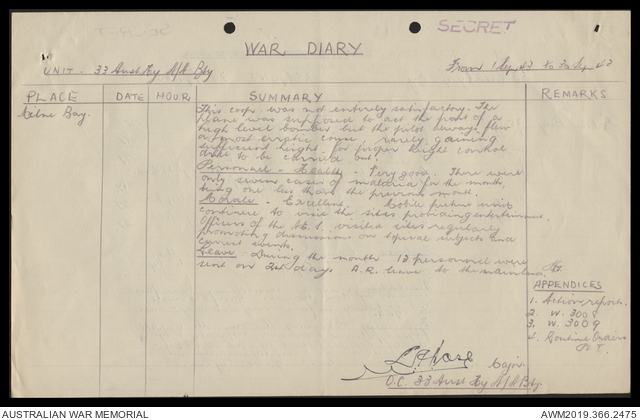 SECRET
WAR DIARY
UNIT - 33 Aust Hy A/A Bty. From 1 Sep 43 to 30 Sep 43
PLACE DATE HOUR SUMMARY REMARKS
Milne Bay. This coop was not entirely satisfactory. The
plane was supposed to act the part of a
high level bomber but the pilot always flew
a most erratic course, rarely gaining
sufficient height for proper height control
drill to be carried out.
Personnel - Health - Very good. There were
only seven cases of malaria for the month,
being one less than the previous month.
Morale - Excellent. Mobile picture units
continue to visit the sites providing entertainment.
Officers of the A.E.S. visited sites regularly
promoting discussions on topical subjects and
current events.
Leave - During the month 12 personnel were
sent on 24 days A.R. leave to the mainland.
APPENDICES
1. Action reports.
2. W. 3008
3. W. 3009
4. Routine Orders
Pt 1.
Major
O.C. 33 Aust Hy A/A Bty.
AUSTRALIAN WAR MEMORIAL AWM2019.366.2475